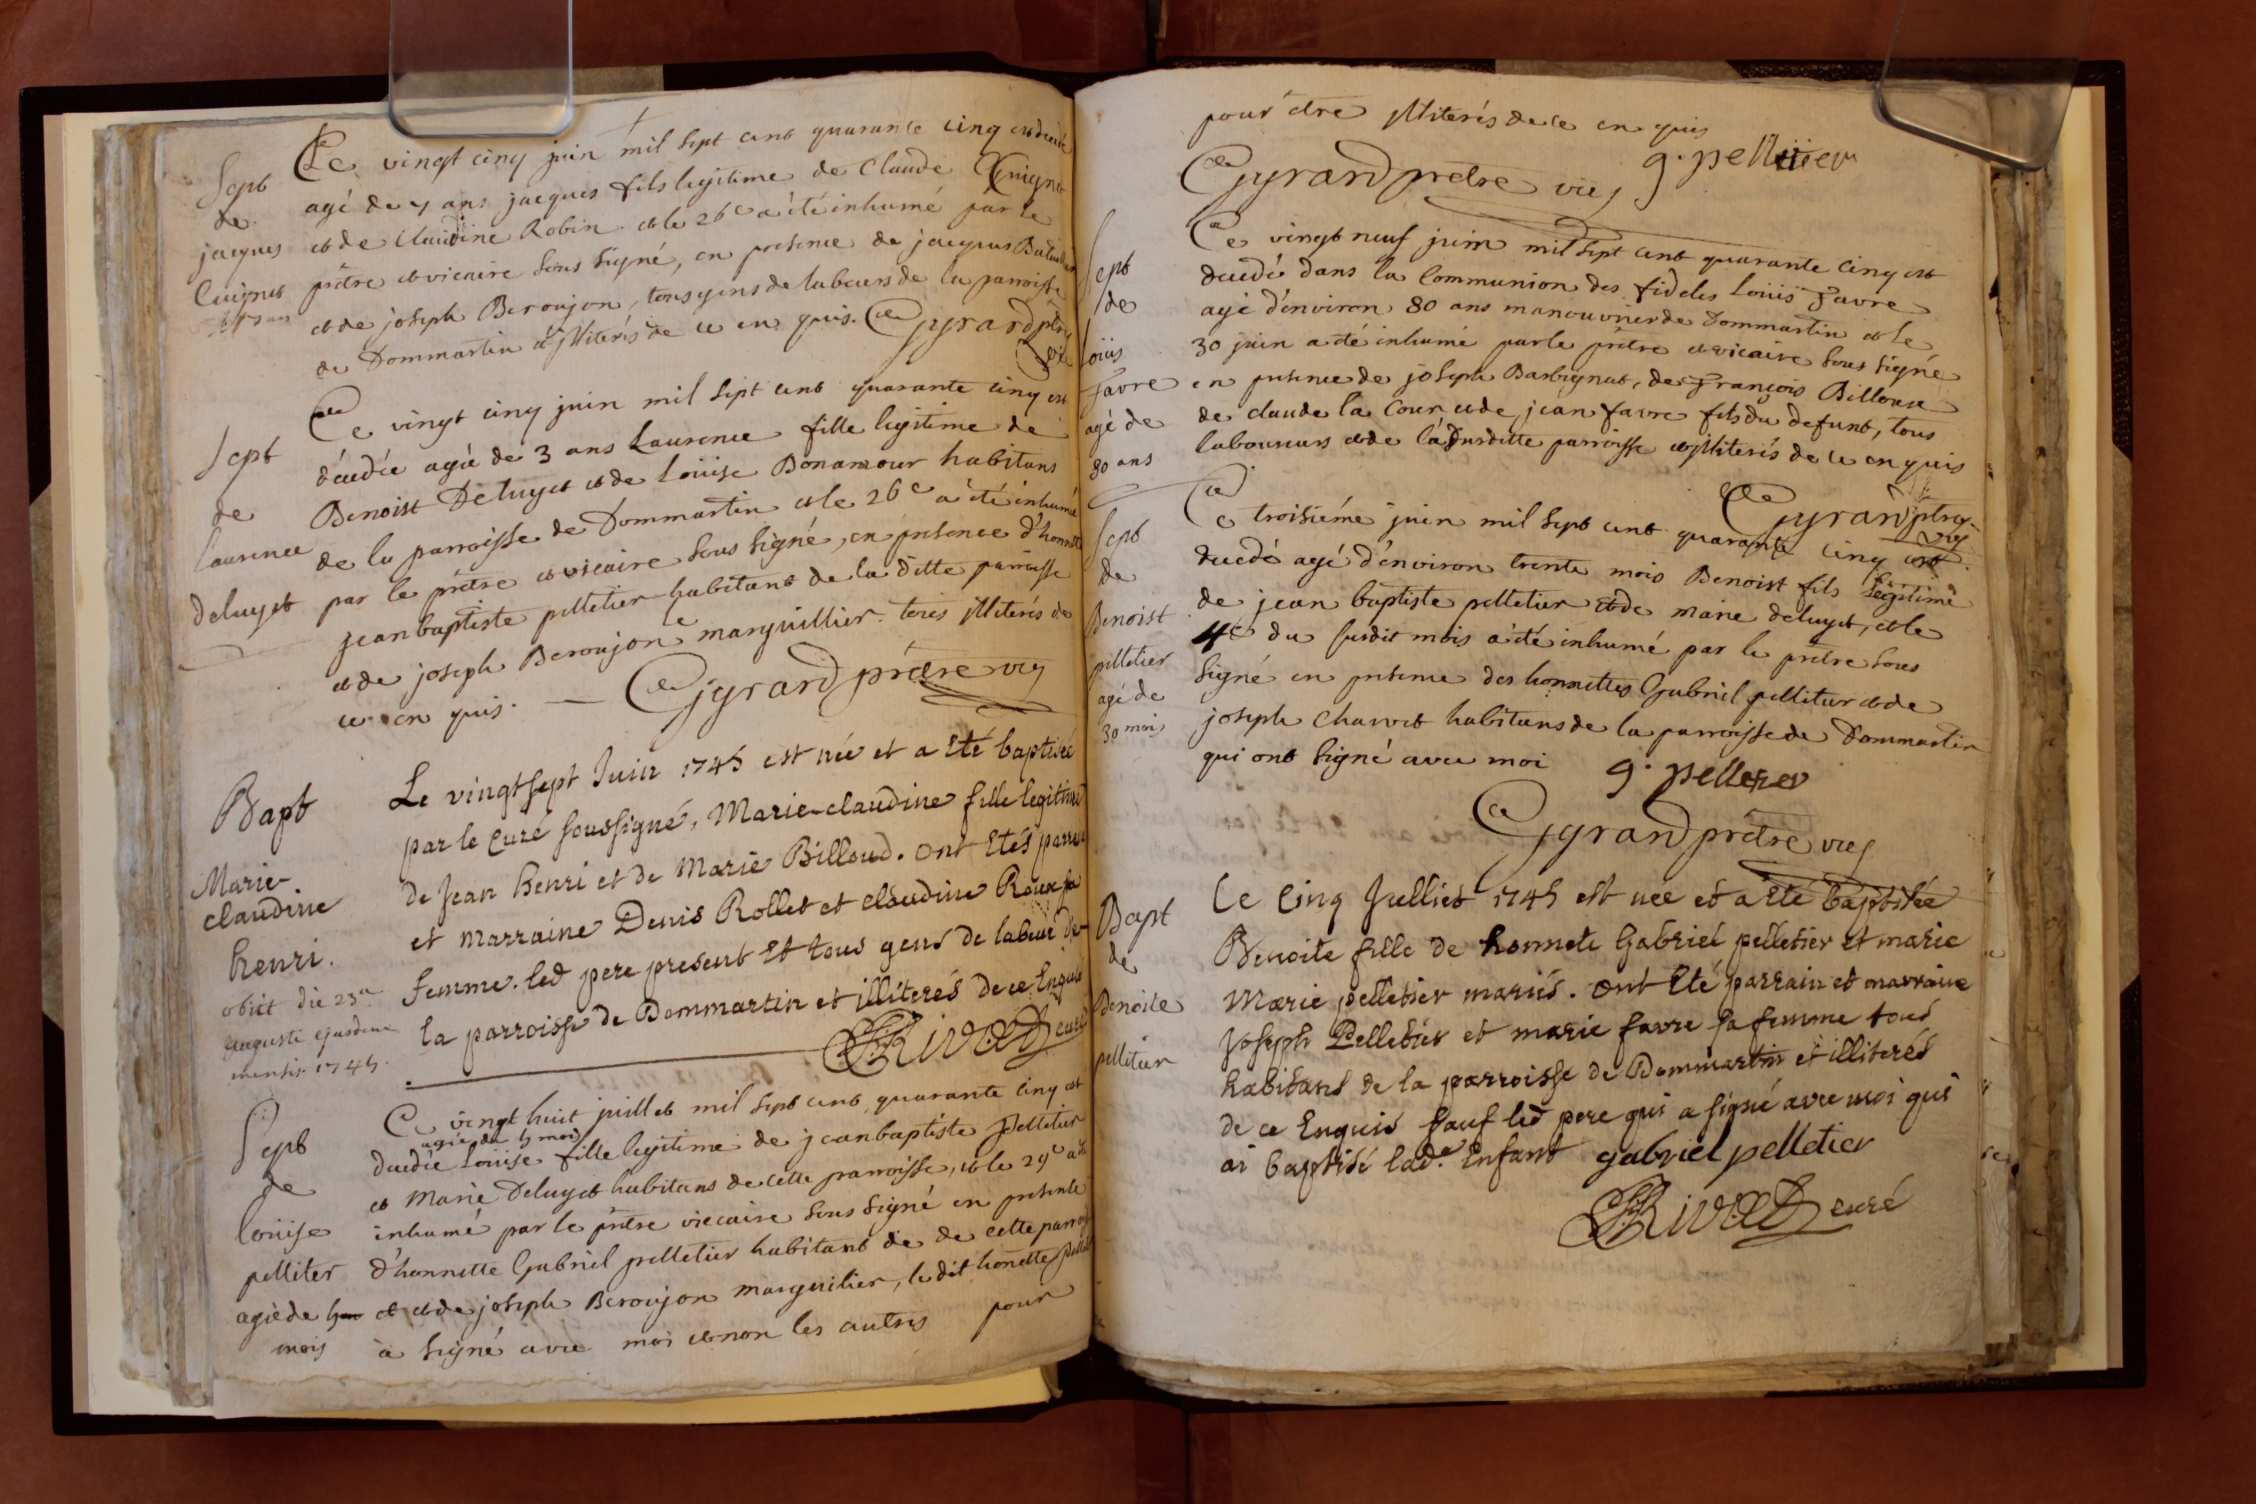 Le vingt cinq juin mil sept cent quarante cinq est decedé
Sept
de
jacques
Cuignet
agé de 7 ans jacques fils legitime de Claude Cuignet
et de Claudine Robin et le 26e a été inhumé par le
prêtre et vicaire sous signé, en presence de jacques
et de joseph Beroujon, tous gens de labeurs de la parroisse
de Dommartin et illiterés de ce en quis. Gyrard ptre
vic
Sept
de
laurence
deluyet
Ce vingt cinq juin mil sept cent quarante cinq est
décedée agée de 3 ans Laurence fille legitime de
Benoist Deluyet et de Loüise Bonamour habitans
de la parroisse de Dommartin et le 26e a été inhumé
par le prêtre et vicaire sous signé, en presence d'honnete
jean baptiste pelletier habitant de la ditte parroisse
et de joseph Beroujon le marguillier tous illiterés de
ce en quis. Gyrard prêtre vic
Bapt
Marie-
claudine
henri.
obiit die 23a
augusti ejusdem
mensis 1745.
Le vingt sept Juin 1745 est née et a Eté baptisée
par le Curé soussigné, Marie-claudine fille legitime
de Jean henri et de Marie Billoud. ont Etés parrain
et marraine Denis Rollet et claudine Roux sa
femme. led pere present Et tous gens de labeur de
la parroisse de Dommartin et illiterés de ce Enquis
Rivat curé
Sept
de
loüise
pelliter
agée de 5
mois
Ce vingt huit juillet mil sept cent quarante cinq est
agée de 5 mois
decedée Loüise fille legitime de jean baptiste Pelletier
et Marie Deluyet habitans de cette parroisse, et le 29e a été
inhumé par le prêtre viccaire sous signé en presente
d'honnette Gabriel pelletier habitant de de cette parroisse
et et de joseph Beroujon marguilier, le dit honette
à signé avec moi et non les autres pour
pour être illiterés de ce en quis
g. pelletier
Gyrard prêtre vic
Sept
de
loüis
Favre
agé de
80 ans
Ce vingt neuf juin mil sept cent quarante cinq est
decedé dans la Communion des fideles Loüis Favre
agé d'environ 80 ans manouvrier de Dommartin et le
30 juin a été inhumé par le prêtre et vicaire sous signé
en presence de joseph Barbignat, de François Billoux
de claude la Cour et de jean favre fils du defunt, tous
laboureurs et de la susditte parroisse et illiterés de ce en quis
Gyrard ptre
vic
Sept
de
Benoist
pelletier
agé de
30 mois
Ce troisiéme juin mil sept cent quarante cinq est
decedé agé d'environ trente mois Benoist fils legitime
de jean baptiste pelletier et de marie deluyet, et le
4e du susdit mois a été inhumé par le prêtre sous
signé en presence des honnettes Gabriel pelletier et de
joseph Charvet habitans de la parroisse de Dommartin
qui ont signé avec moi g. pelleter
Gyrard prêtre vic
Bapt
de
Benoite
pelletier
Le Cinq Juilliet 1745 est née et a Eté baptisée
Benoite fille de honnete Gabriel pelletier et marie
Marie pelletier mariés. ont Eté parrain et marraine
Joseph Pelletier et marie favre sa femme tous
habitans de la parroisse de Dommartin et illiterés
de ce Enquis sauf led pere qui a signé avec moi qui
ai baptisé lad.e Enfant gabriel pelletier
Rivat curé